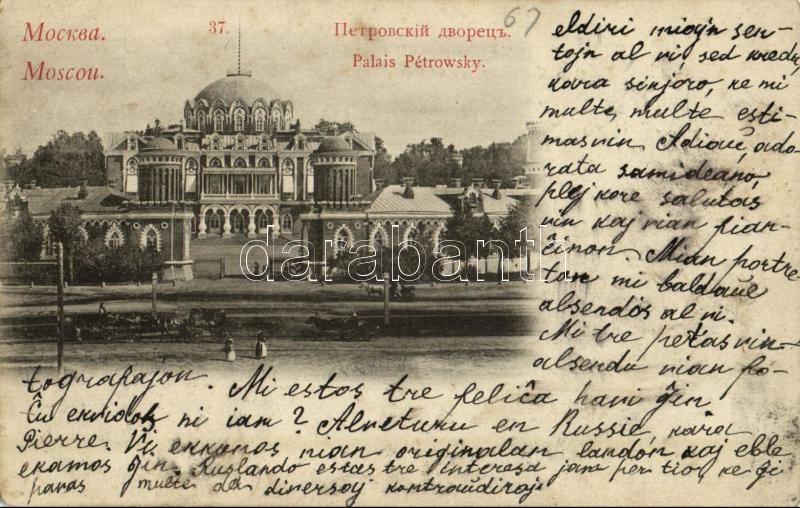 Москва.
37.
Петровскій дворецъ.
67
Moscou.
Palais Pétrowsky.
eldiri miajn sen-
tojn al ni sed kredu,
kara sinjoro, ke mi
multe, multe esti-
mas vin. Adiaŭ, ado-
rata samideano,
plej kore salutas
vin kaj vian fian-
ĉinon. Mian portre
ton mi baldaŭ
absendos al ni.
Mi tre petas vin
absendu vian fo-
tografajon. Mi estos tre feliĉa havi ĝin
Ĉu ekvidos ni iam? Alveturu en Rusio, kara
Pierre. Vi ekkonos nian originalan landon kaj eble
ekamos ĝin. Ruslando estas tre interesa jam per tio, ke ĝi
havas multe da diversoj kontraŭdiroj
darabanti.com